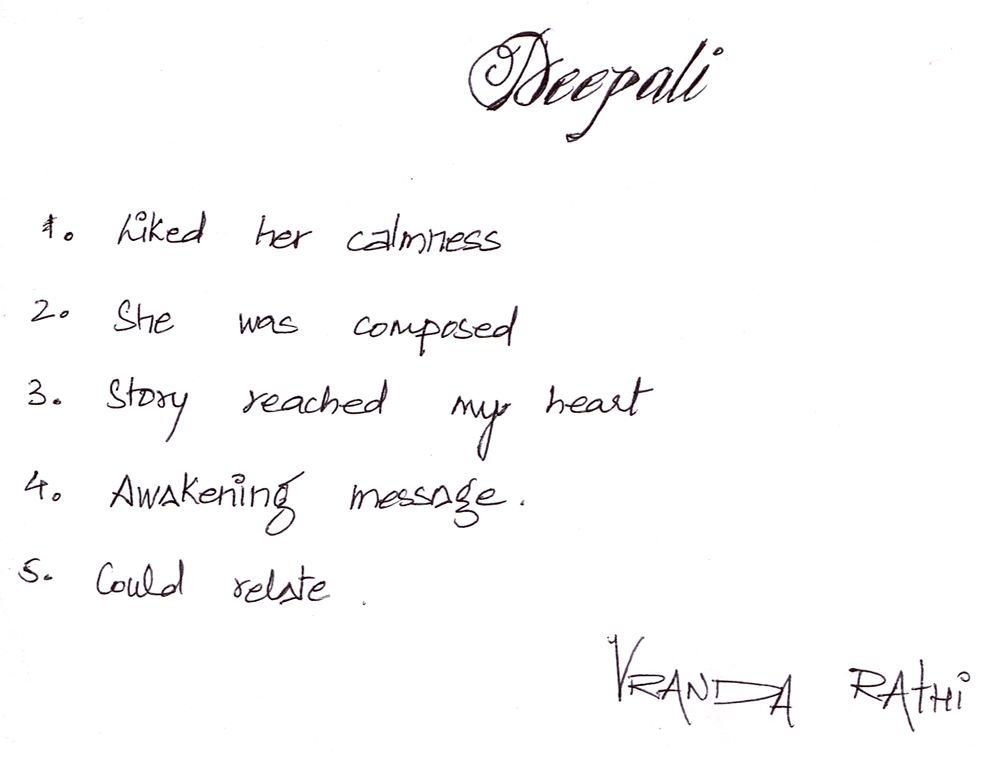 Deepali
1. Liked her calmness
2. She was composed
3. Story reached my heart
4. Awakening message.
5. Could relate.
VRANDA RATHi